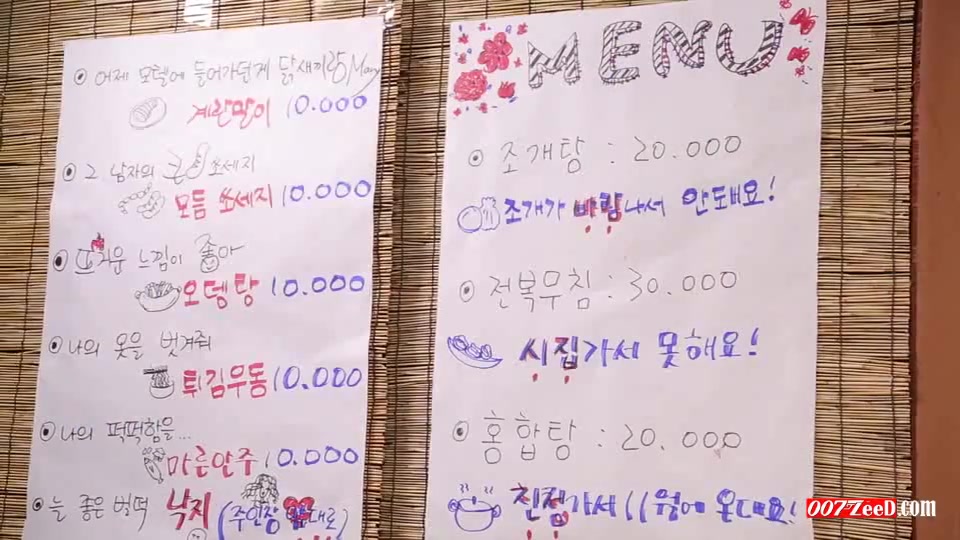 어제 모텔에 들어가던게 닭새끼랑 May
계란말이 10.000
그 남자의 큰 쏘세지
모듬 쏘세지 10.000
뜨거운 느낌이 좋아
오뎅탕 10.000
나의 옷을 벗겨줘
튀김우동 10.000
나의 퍽퍽함을...
마른안주 10.000
늘 좋은 벌떡
낙지 (주인장 대로)
MENU
조개탕 : 20.000
조개가 바람나서 안돼요!
전복무침 : 30.000
시집가서 못해요!
홍합탕 : 20.000
친정가서 11월에 온대요!
007ZeeD.com